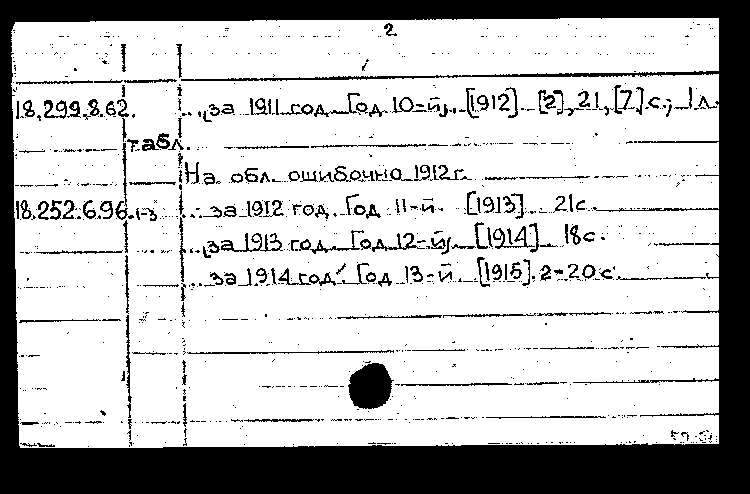 2
18.299.8.62. ..„за 1911 год. Год 10-й„. [1912]. [2], 21, [7] с.; 1 л.
табл.
На обл. ошибочно 1912 г.
18.252.6.96.1-3 ... за 1912 год. Год 11-й. [1913] 21 с.
..„за 1913 год. Год 12-й„. [1914] 18 с.
... за 1914 год. Год 13-й. [1915]. 2-20 с.